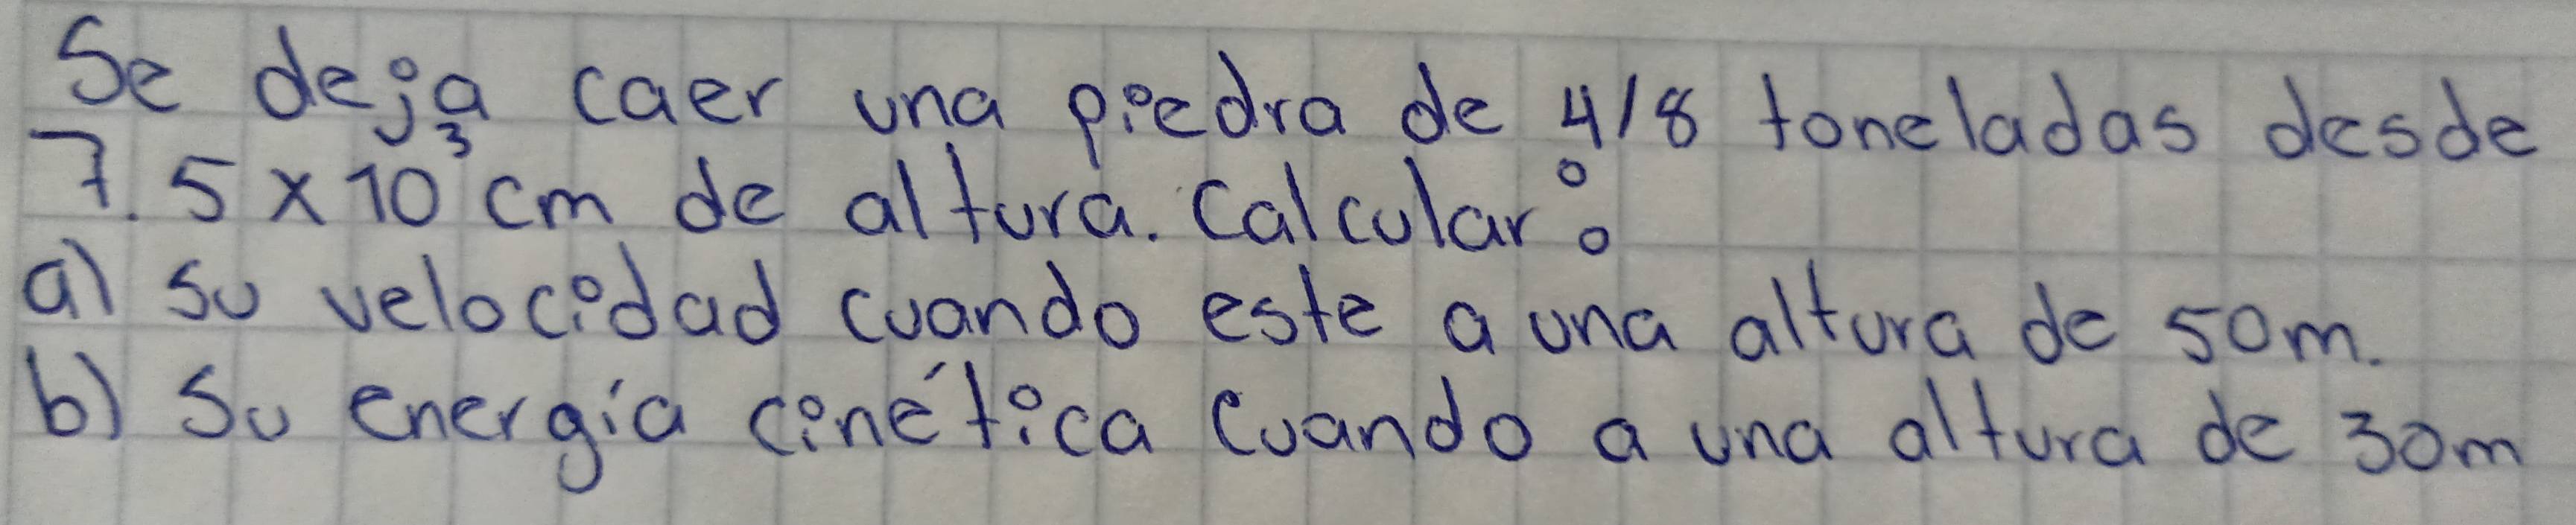 Se deja caer una piedra de 4/8 toneladas desde
7.5 x 10³ cm de altura. Calcular:
a) su velocidad cuando este a una altura de 50m.
b) Su energía cinética cuando a una altura de 30m